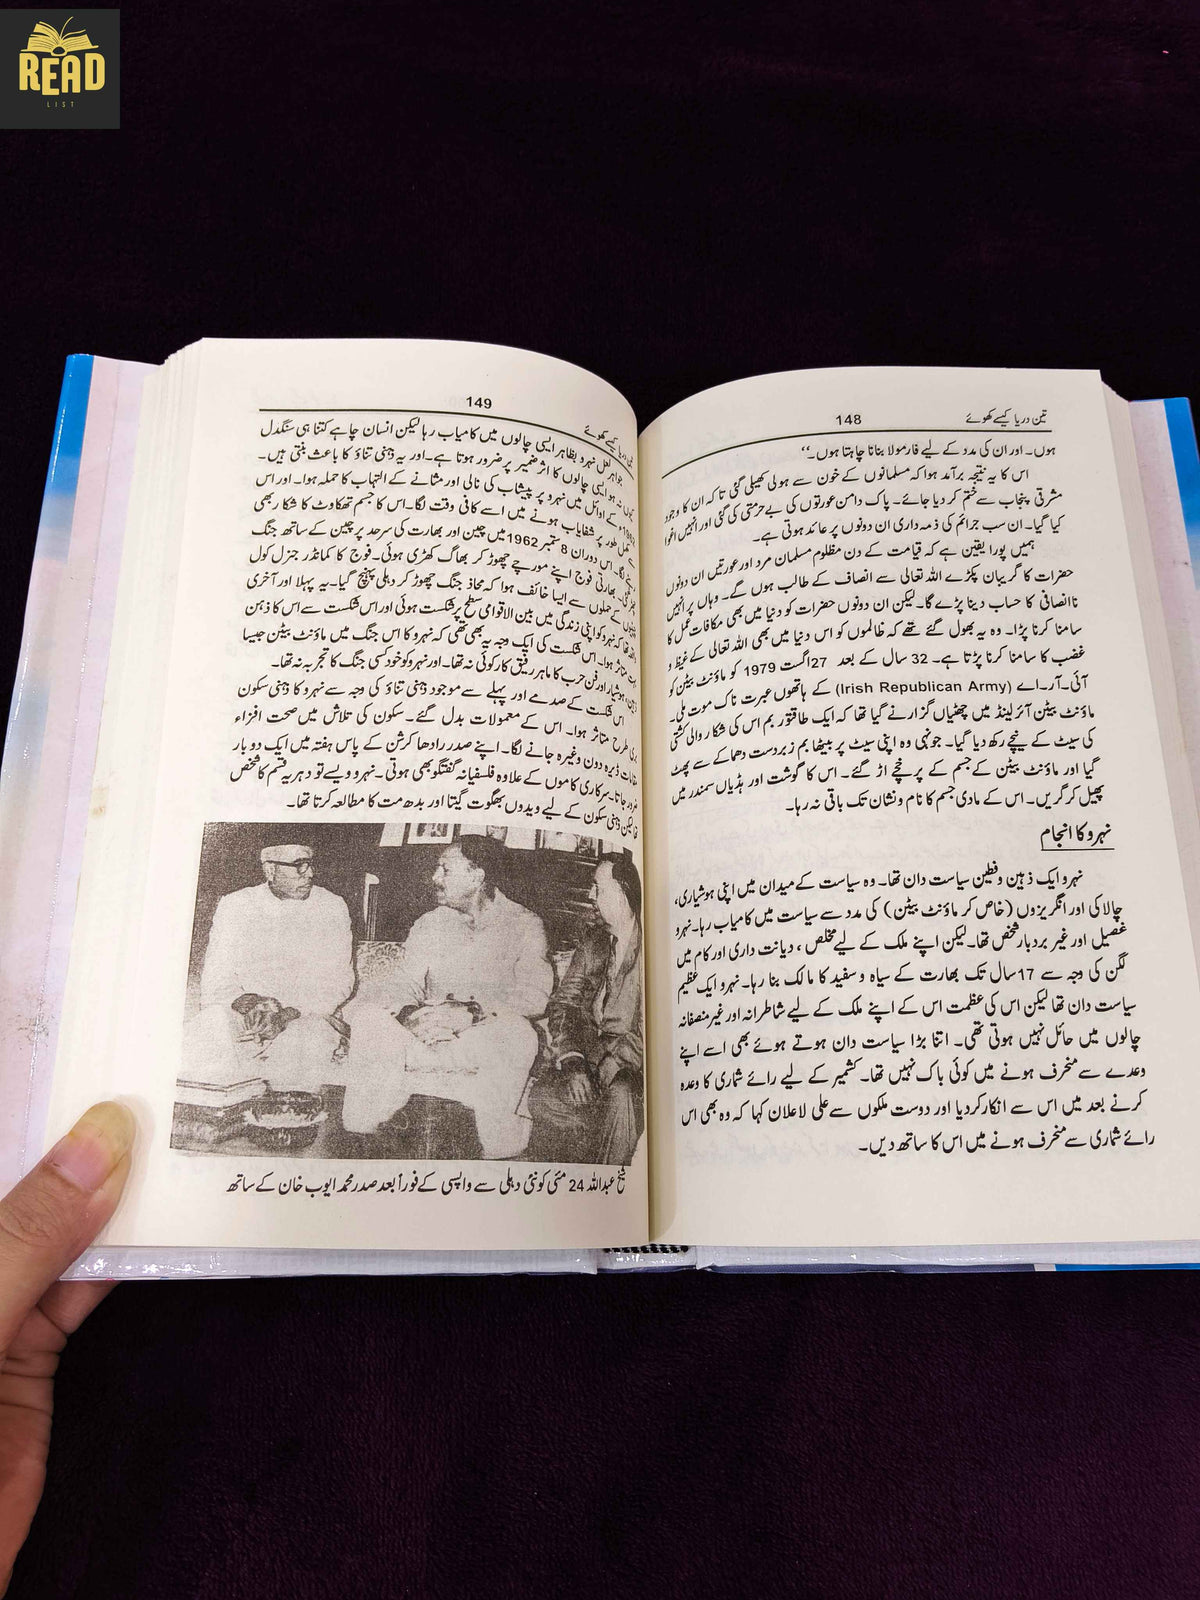 READ
LIST
148
تین دریا کیسے کھوئے
ہوں۔ اور ان کی مدد کے لیے فارمولا بنانا چاہتا ہوں۔‘‘
اس کا یہ نتیجہ برآمد ہوا کہ مسلمانوں کے خون سے ہولی کھیلی گئی تا کہ ان کا وجود
مشرقی پنجاب سے ختم کر دیا جائے۔ پاک دامن عورتوں کی بے حرمتی کی گئی اور انہیں اغوا
کیا گیا۔ ان سب جرائم کی ذمہ داری ان دونوں پر عائد ہوتی ہے۔
ہمیں پورا یقین ہے کہ قیامت کے دن مظلوم مسلمان مرد اور عورتیں ان دونوں
حضرات کا گریبان پکڑے اللہ تعالی سے انصاف کے طالب ہوں گے۔ وہاں پر انہیں
ناانصافی کا حساب دینا پڑے گا۔ لیکن ان دونوں حضرات کو دنیا میں بھی مکافات عمل کا
سامنا کرنا پڑا۔ وہ یہ بھول گئے تھے کہ ظالموں کو اس دنیا میں بھی اللہ تعالی کے غیظ و
غضب کا سامنا کرنا پڑتا ہے۔ 32 سال کے بعد 27 اگست 1979 کو ماؤنٹ بیٹن کو
آئی۔آر۔اے (Irish Republican Army) کے ہاتھوں عبرت ناک موت ملی۔
ماؤنٹ بیٹن آئرلینڈ میں چھٹیاں گزارنے گیا تھا کہ ایک طاقتور بم اس کی شکار والی کشتی
کی سیٹ کے نیچے رکھ دیا گیا۔ جونہی وہ اپنی سیٹ پر بیٹھا بم زبردست دھماکے سے پھٹ
گیا اور ماؤنٹ بیٹن کے جسم کے پرخچے اڑ گئے۔ اس کا گوشت اور ہڈیاں سمندر میں
پھیل کر گریں۔ اس کے مادی جسم کا نام و نشان تک باقی نہ رہا۔
نہرو کا انجام
نہرو ایک ذہین و فطین سیاست دان تھا۔ وہ سیاست کے میدان میں اپنی ہوشیاری،
چالاکی اور انگریزوں (خاص کر ماؤنٹ بیٹن) کی مدد سے سیاست میں کامیاب رہا۔ نہرو
غصیل اور غیر بردبار شخص تھا۔ لیکن اپنے ملک کے لیے مخلص، دیانت داری اور کام میں
لگن کی وجہ سے 17 سال تک بھارت کے سیاہ و سفید کا مالک بنا رہا۔ نہرو ایک عظیم
سیاست دان تھا لیکن اس کی عظمت اس کے اپنے ملک کے لیے شاطرانہ اور غیر منصفانہ
چالوں میں حائل نہیں ہوتی تھی۔ اتنا بڑا سیاست دان ہوتے ہوئے بھی اسے اپنے
وعدے سے منحرف ہونے میں کوئی باک نہیں تھا۔ کشمیر کے لیے رائے شماری کا وعدہ
کرنے بعد میں اس سے انکار کر دیا اور دوست ملکوں سے علی لاعلان کہا کہ وہ بھی اس
رائے شماری سے منحرف ہونے میں اس کا ساتھ دیں۔
149
دریا کیسے کھوئے
جواہر لعل نہرو بظاہر ایسی چالوں میں کامیاب رہا لیکن انسان چاہے کتنا ہی سنگدل
کیوں نہ ہو ایسی چالوں کا اثر ضمیر پر ضرور ہوتا ہے۔ اور یہ ذہنی تناؤ کا باعث بنتی ہیں۔
1962ء کے اوائل میں نہرو پر پیشاب کی نالی اور مثانے کے التہاب کا حملہ ہوا۔ اور اس
سے مکمل طور پر شفایاب ہونے میں اسے کافی وقت لگا۔ اس کا جسم تھکاوٹ کا شکار بھی
رہنے لگا۔ اس دوران 8 ستمبر 1962 میں چین اور بھارت کی سرحد پر چین کے ساتھ جنگ
چھڑ گئی۔ بھارتی فوج اپنے مورچے چھوڑ کر بھاگ کھڑی ہوئی۔ فوج کا کمانڈر جنرل کول
چینیوں کے حملوں سے ایسا خائف ہوا کہ محاذ جنگ چھوڑ کر دہلی پہنچ گیا۔ یہ پہلا اور آخری
واقعہ تھا کہ نہرو کو اپنی زندگی میں بین الاقوامی سطح پر شکست ہوئی اور اس شکست سے اس کا ذہن
بہت متاثر ہوا۔ اس شکست کی ایک وجہ یہ بھی تھی کہ نہرو کا اس جنگ میں ماؤنٹ بیٹن جیسا
ذہین، ہوشیار اور فن حرب کا ماہر رفیق کار کوئی نہ تھا۔ اور نہرو کو خود کسی جنگ کا تجربہ نہ تھا۔
اس شکست کے صدمے اور پہلے سے موجود ذہنی تناؤ کی وجہ سے نہرو کا ذہنی سکون
بری طرح متاثر ہوا۔ اس کے معمولات بدل گئے۔ سکون کی تلاش میں صحت افزاء
مقامات ڈیرہ دون وغیرہ جانے لگا۔ اپنے صدر رادھا کرشن کے پاس ہفتہ میں ایک دو بار
ضرور جاتا۔ سرکاری کاموں کے علاوہ فلسفیانہ گفتگو بھی ہوتی۔ نہرو ویسے تو دہریہ قسم کا شخص
تھا لیکن ذہنی سکون کے لیے ویدوں بھگوت گیتا اور بدھ مت کا مطالعہ کرتا تھا۔
شیخ عبداللہ 24 مئی کو نئی دہلی سے واپسی کے فوراً بعد صدر محمد ایوب خان کے ساتھ